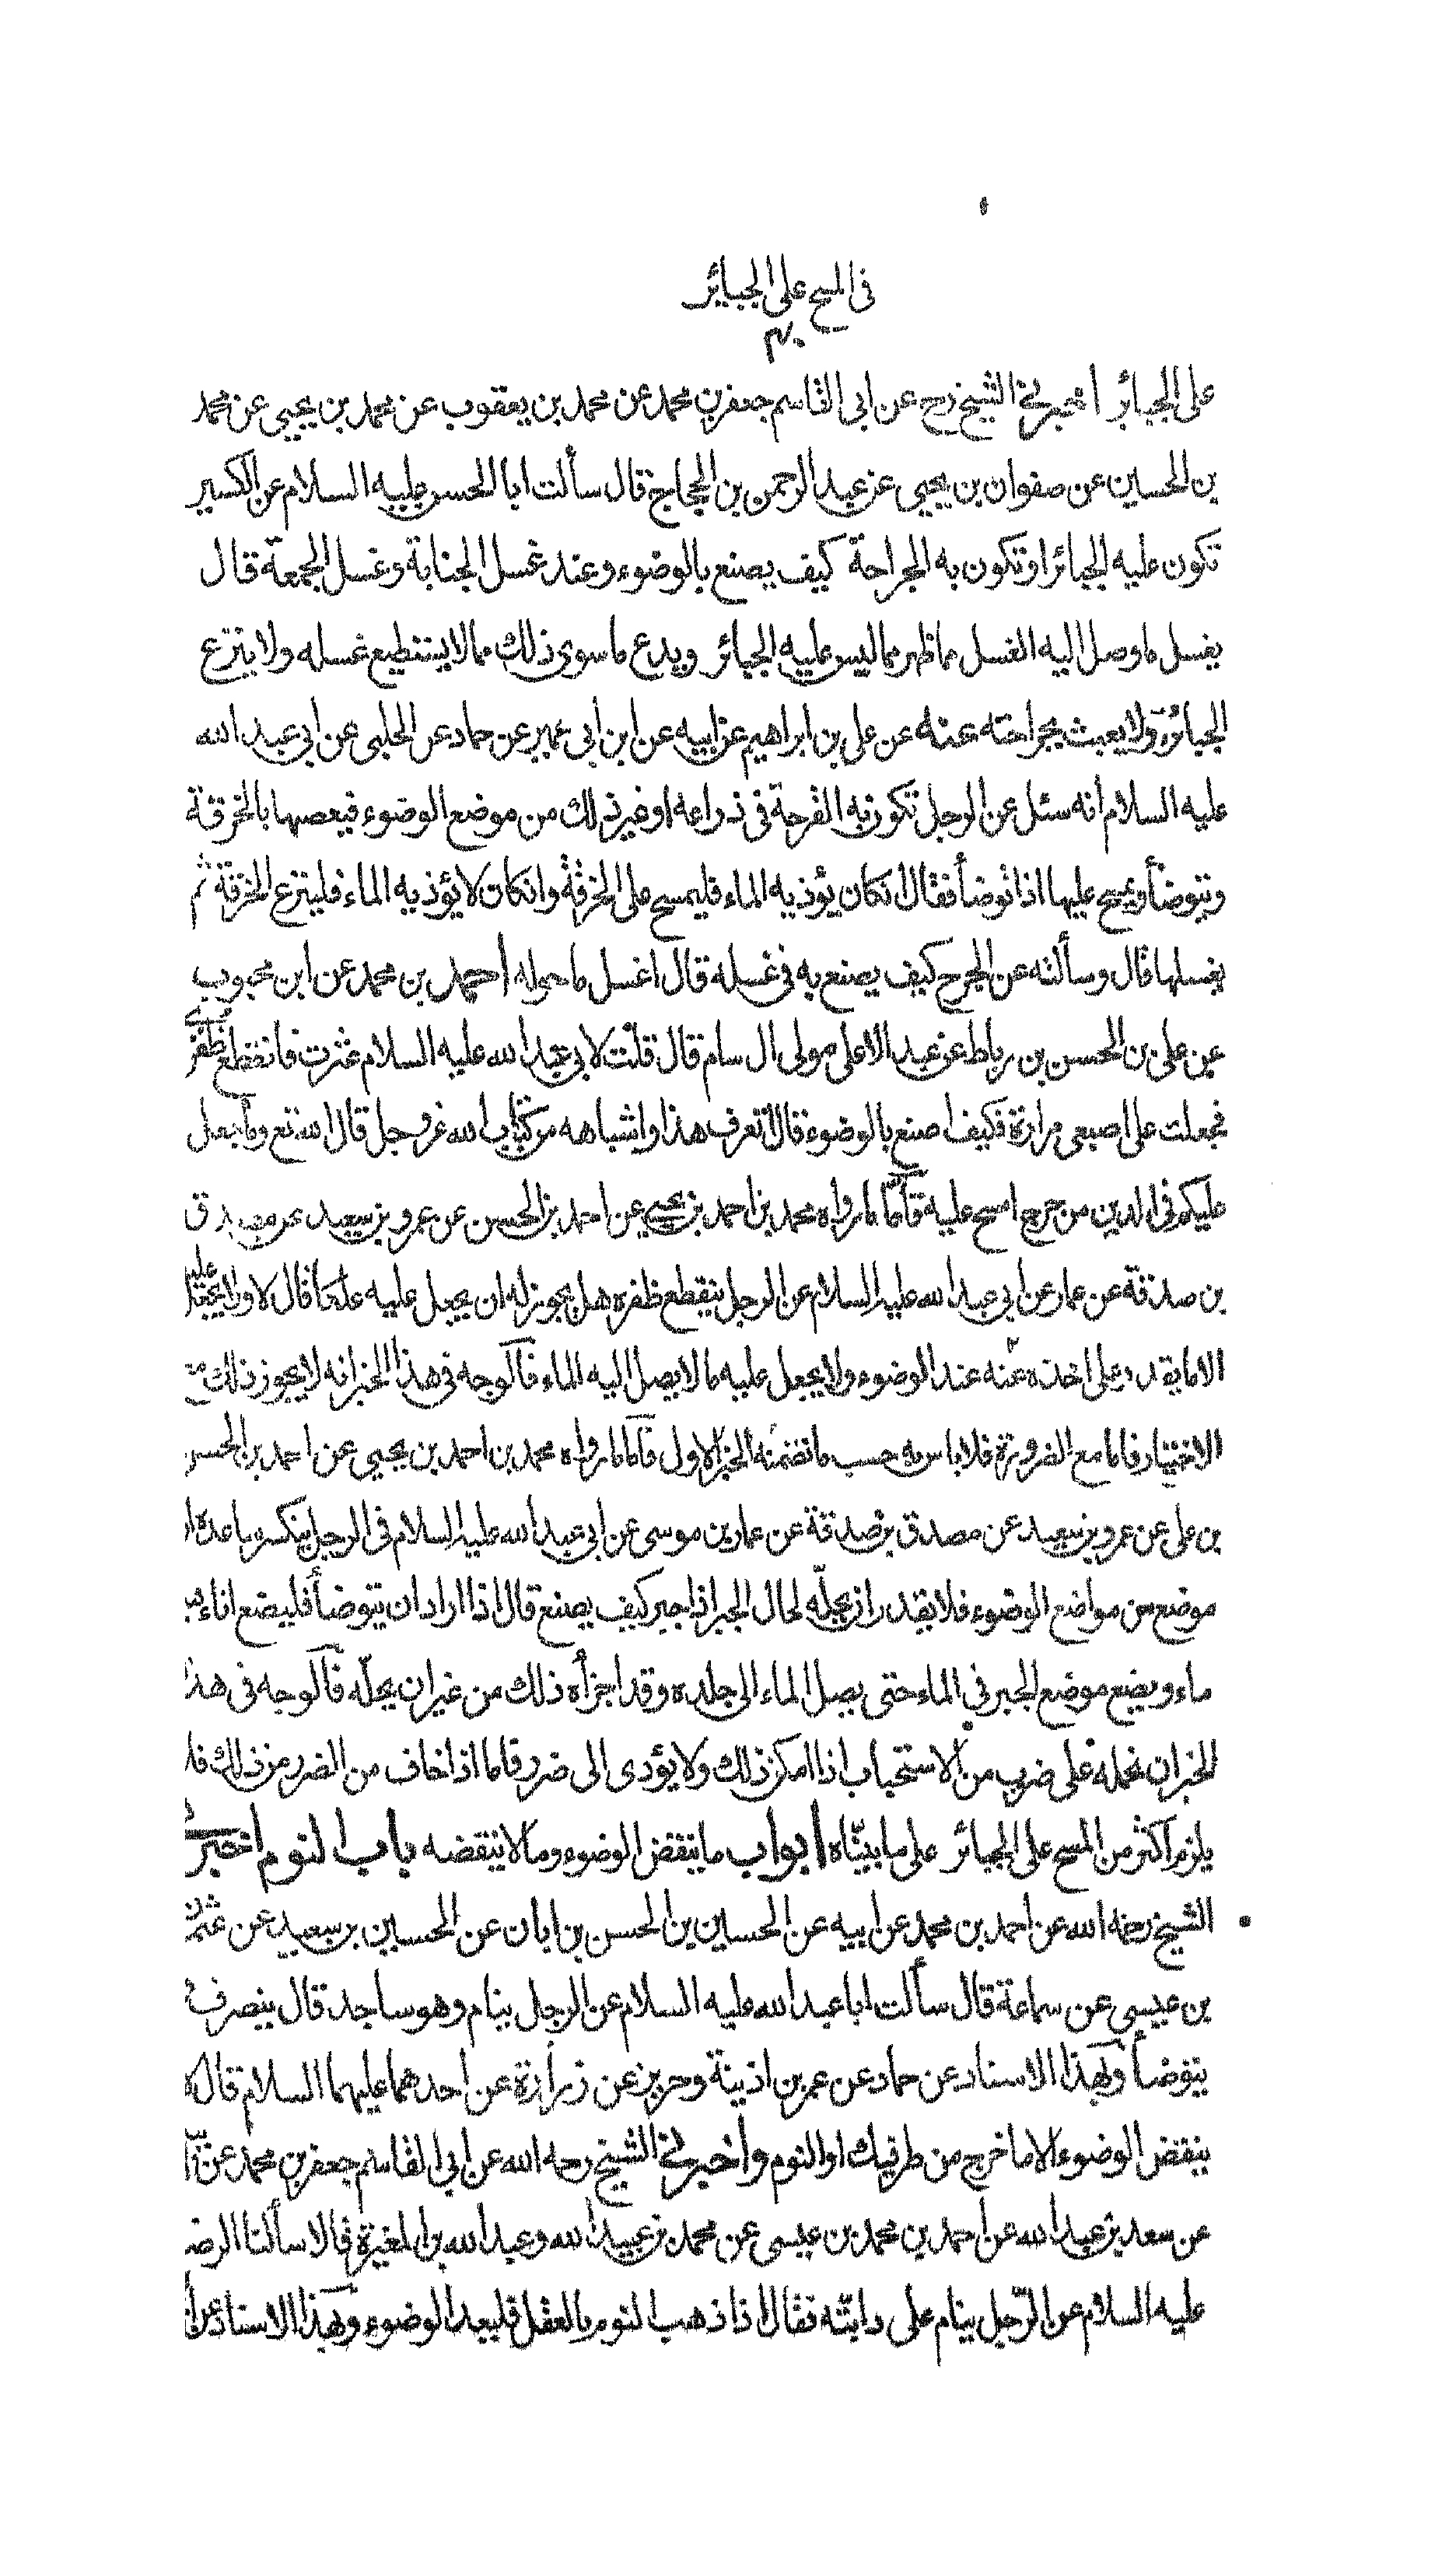 فى المسح على الجبائر
على الجبائر أخبرني الشيخ رح عن ابى القاسم جعفر بن محمد عن محمد بن يعقوب عن محمد بن يحيى عن محمد
بن الحسين عن صفوان بن يحيى عن عبد الرحمن بن الحجاج قال سألت ابا الحسن عليه السلام عن الكسير
تكون عليه الجبائر او تكون به الجراحة كيف يصنع بالوضوء وعند غسل الجنابة وغسل الجمعة قال
يغسل ما وصل اليه الغسل مما ظهر مما ليس عليه الجبائر ويدع ما سوى ذلك مما لا يستطيع غسله ولا ينزع
الجبائر ولا يعبث بجراحته عنه عن على بن ابراهيم عن ابيه عن ابن أبى عمير عن حماد عن الحلبى عن ابى عبد الله
عليه السلام انه سئل عن الرجل تكون به القرحة فى ذراعه او غير ذلك من موضع الوضوء فيعصبها بالخرقة
ويتوضأ ويمسح عليها اذا توضأ فقال ان كان يؤذيه الماء فليمسح على الخرقة وان كان لا يؤذيه الماء فلينزع الخرقة ثم
يغسلها قال وسألته عن الجرح كيف يصنع به فى غسله قال اغسل ما حوله أحمد بن محمد عن ابن محبوب
عن على بن الحسن بن رباط عن عبد الاعلى مولى ال سام قال قلت لابى عبد الله عليه السلام عثرت فانقطع ظفرى
فجعلت على اصبعى مرارة فكيف اصنع بالوضوء قال تعرف هذا واشباهه من كتاب الله عز وجل قال الله تع وما جعل
عليكم فى الدين من حرج امسح عليه فأما ما رواه محمد بن احمد بن يحيى عن احمد بن الحسن عن عمرو بن سعيد عن مصدق
بن صدقة عن عمار عن ابى عبد الله عليه السلام عن الرجل ينقطع ظفره هل يجوز له ان يجعل عليه علكا قال لا ولا يجعل عليه
الا ما يقدر على اخذه عنه عند الوضوء ولا يجعل عليه ما لا يصل اليه الماء فالوجه فى هذا الخبر انه لا يجوز ذلك مع
الاختيار فاما مع الضرورة فلا باس به حسب ما تضمنه الخبر الاول فأما ما رواه محمد بن احمد بن يحيى عن احمد بن الحسن
بن على عن عمرو بن سعيد عن مصدق بن صدقة عن عمار بن موسى عن ابى عبد الله عليه السلام فى الرجل ينكسر ساعده او
موضع من مواضع الوضوء فلا يقدر ان يحله لحال الجبر اذا جبر كيف يصنع قال اذا اراد ان يتوضأ فليضع اناء فيه
ماء ويضع موضع الجبر فى الماء حتى يصل الماء الى جلده وقد اجزأه ذلك من غير ان يحله فالوجه فى هذا
الخبر ان نحمله على ضرب من الاستحباب اذا امكن ذلك ولا يؤدى الى ضرر فاما اذا خاف من الضرر من ذلك فلا
يلزم اكثر من المسح على الجبائر على ما بيناه ابواب ما ينقض الوضوء وما لا ينقضه باب النوم اخبرنى
الشيخ رحمه الله عن احمد بن محمد عن ابيه عن الحسين بن الحسن بن ابان عن الحسين بن سعيد عن عثمن
بن عيسى عن سماعة قال سألت ابا عبد الله عليه السلام عن الرجل ينام وهو ساجد قال ينصرف و
يتوضأ وبهذا الاسناد عن حماد عن عمر بن اذينة وحريز عن زرارة عن احدهما عليهما السلام قال لا
ينقض الوضوء الا ما خرج من طرفيك او النوم واخبرني الشيخ رحمه الله عن ابى القاسم جعفر بن محمد عن
عن سعد بن عبد الله عن احمد بن محمد بن عيسى عن محمد بن عبيد الله وعبد الله بن المغيرة قالا سألنا الرضا
عليه السلام عن الرجل ينام على دابته فقال اذا ذهب النوم بالعقل فليعد الوضوء وبهذا الاسناد عن